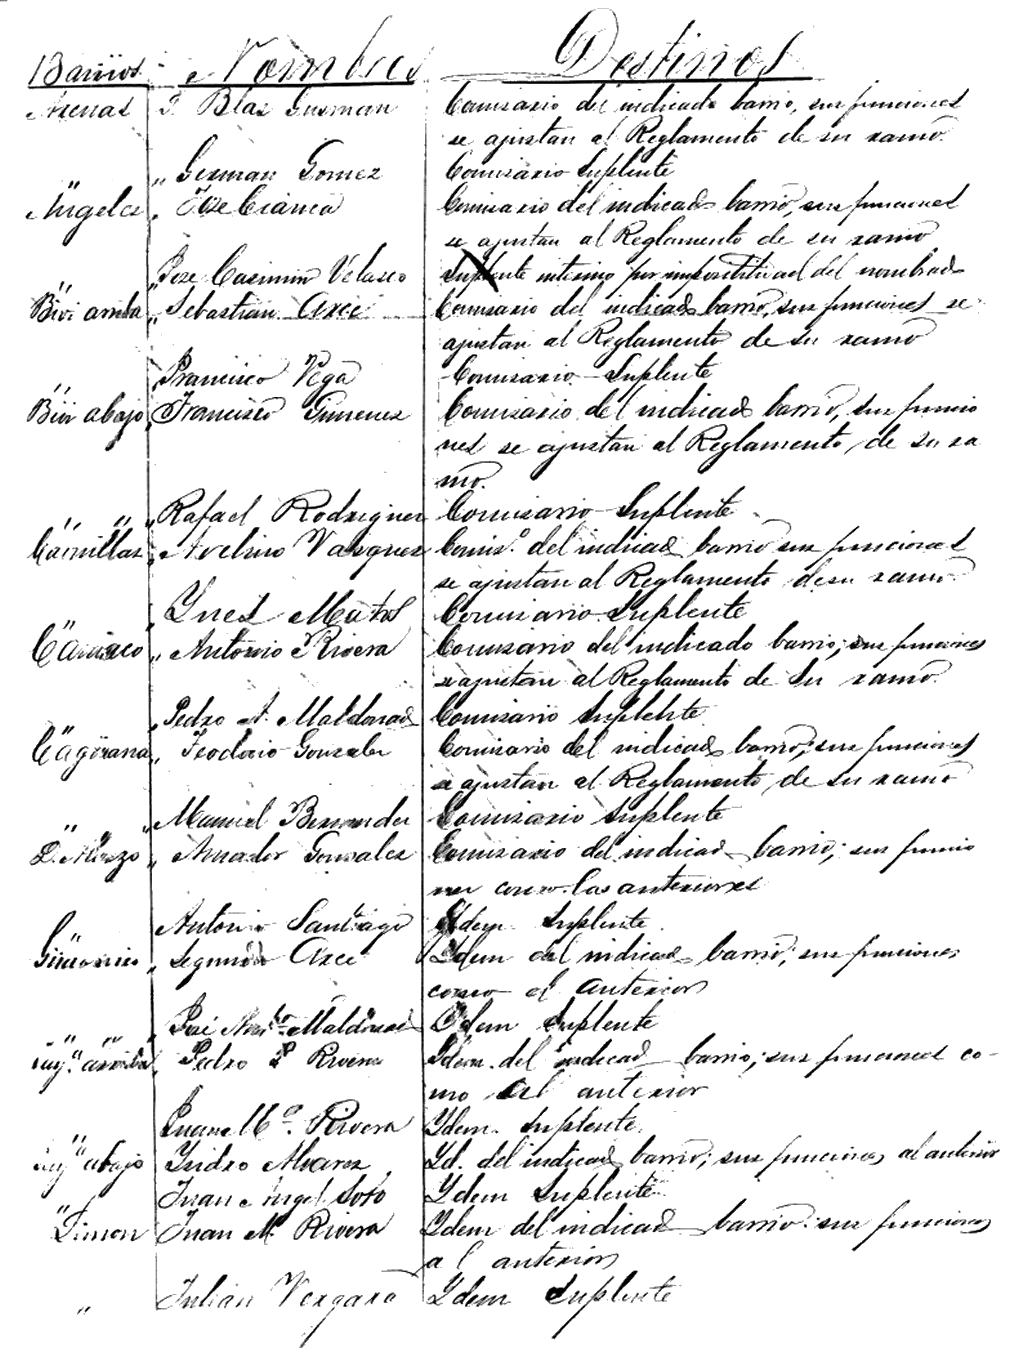 Barrios Nombres Destinos
Arenas D. Blas Gusman Comisario del indicado barrio, sus funciones
se ajustan al Reglamento de su ramo.
" " German Gomez Comisario Suplente
Angeles " Jose Cianca Comisario del indicado barrio, sus funciones
se ajustan al Reglamento de su ramo
" " Jose Casimiro Velasco Suplente interino por imposibilidad del nombrado
Bivi arriba " Sebastian Arce Comisario del indicado barrio, sus funciones se
ajustan al Reglamento de su ramo
" Francisco Vega Comisario Suplente
Bivi abajo " Francisco Gimenez Comisario del indicado barrio, sus funcio
nes se ajustan al Reglamento, de su ra
mo.
" " " Rafael Rodriguez Comisario Suplente
Caonillas " Avelino Vasquez Comis.º del indicado barrio sus funciones
se ajustan al Reglamento de su ramo
" " Ynes Matos Comisario Suplente
Caniaco " Antonio Rivera Comisario del indicado barrio; sus funciones
se ajustan al Reglamento de su ramo.
" " Pedro A. Maldonado Comisario Suplente
Cagüana " Teodorio Gonzalez Comisario del indicado barrio; sus funciones
se ajustan al Reglamento, de su ramo
" " Manuel Bermudez Comisario Suplente
D. Alonzo " Amador Gonsalez Comisario del indicado barrio; sus funcio
nes como los anteriores
" Antonio Santiago Ydem Suplente
" Segundo Arce Ydem del indicado barrio; sus funciones
como el anterior
" " José Maldonado Ydem Suplente
arriba Pedro P Rivera Ydem del indicado barrio; sus funciones co-
mo al anterior
" Juan M.ª Rivera Ydem Suplente.
abajo Ysidro Alvarez Yd. del indicado barrio; sus funciones al anterior
" Juan Angel Soto Ydem Suplente
Limon Juan M.ª Rivera Ydem del indicado barrio: sus funciones
al anterior
" Julian Vergara Ydem Suplente